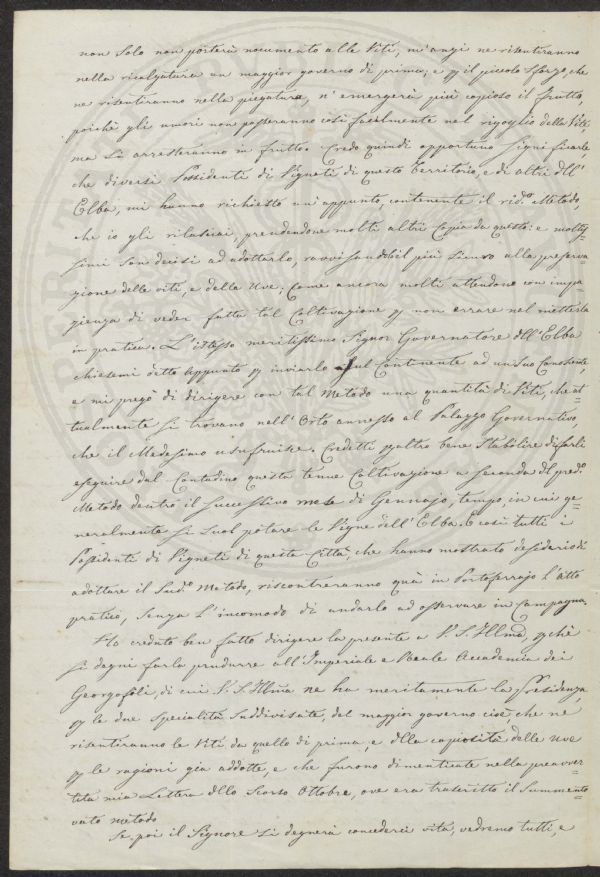 non solo non porterà nocumento alle Viti, m'anzi ne risentiranno
nella ricalzatura un maggior governo di prima; e p il piccolo sforzo, che
ne risentiranno nella piegatura, n'emergerà più copioso il frutto,
poiché gli umori non passeranno così facilmente nel rigoglio della Vite,
ma si arresteranno in frutto. Credo quindi opportuno significarle,
che diversi Possidenti di Vigneti di questo Territorio, e di altri dell'
Elba, mi hanno richiesto un'appunto contenente il rid.º Metodo,
che io gli rilasciai, prendendone molti altri Copia da questi: e moltis=
simi son decisi ad adottarlo, ravvisandolo il più sicuro alla preserva=
zione delle viti, e delle Uve. Come ancora molti attendono con impa=
zienza di veder fatta tal Coltivazione p non errare nel metterla
in pratica. L'istesso meritissimo Signor Governatore dell'Elba
chiesemi detto appunto p inviarlo sul Continente ad un suo Conoscente,
e mi pregò di dirigere con tal Metodo una quantità di Viti, che at=
tualmente si trovano nell'Orto annesso al Palazzo Governativo,
che il Medesimo usufruisce. Credetti p altro bene stabilire di farli
eseguire dal Contadino questa tenue Coltivazione a seconda del pred.º
Metodo dentro il successivo mese di Gennajo, tempo, in cui ge=
neralmente si suol potare le Vigne dell'Elba. E così tutti i
Possidenti di Vigneti di questa Città, che hanno mostrato desiderio di
adottare il sud.º Metodo, riscontreranno quà in Portoferrajo l'atto
pratico, senza l'incomodo di andarlo ad osservare in Campagna.
Ho creduto ben fatto dirigere la presente a V. S. Illma, p chè
si degni farla produrre all'Imperiale e Reale Accademia dei
Georgofili, di cui V. S. Illma ne ha meritamente la Presidenza,
p le due specialità suddivisate, del maggior governo cioè, che ne
risentiranno le Viti, da quello di prima, e della copiosità delle Uve
p le ragioni già addotte, e che furono dimenticate nella preavver=
tita mia Lettera dello scorso Ottobre, ove era trascritto il summento=
vato metodo
Se poi il Signore si degnerà concederci vita, vedremo tutti, e